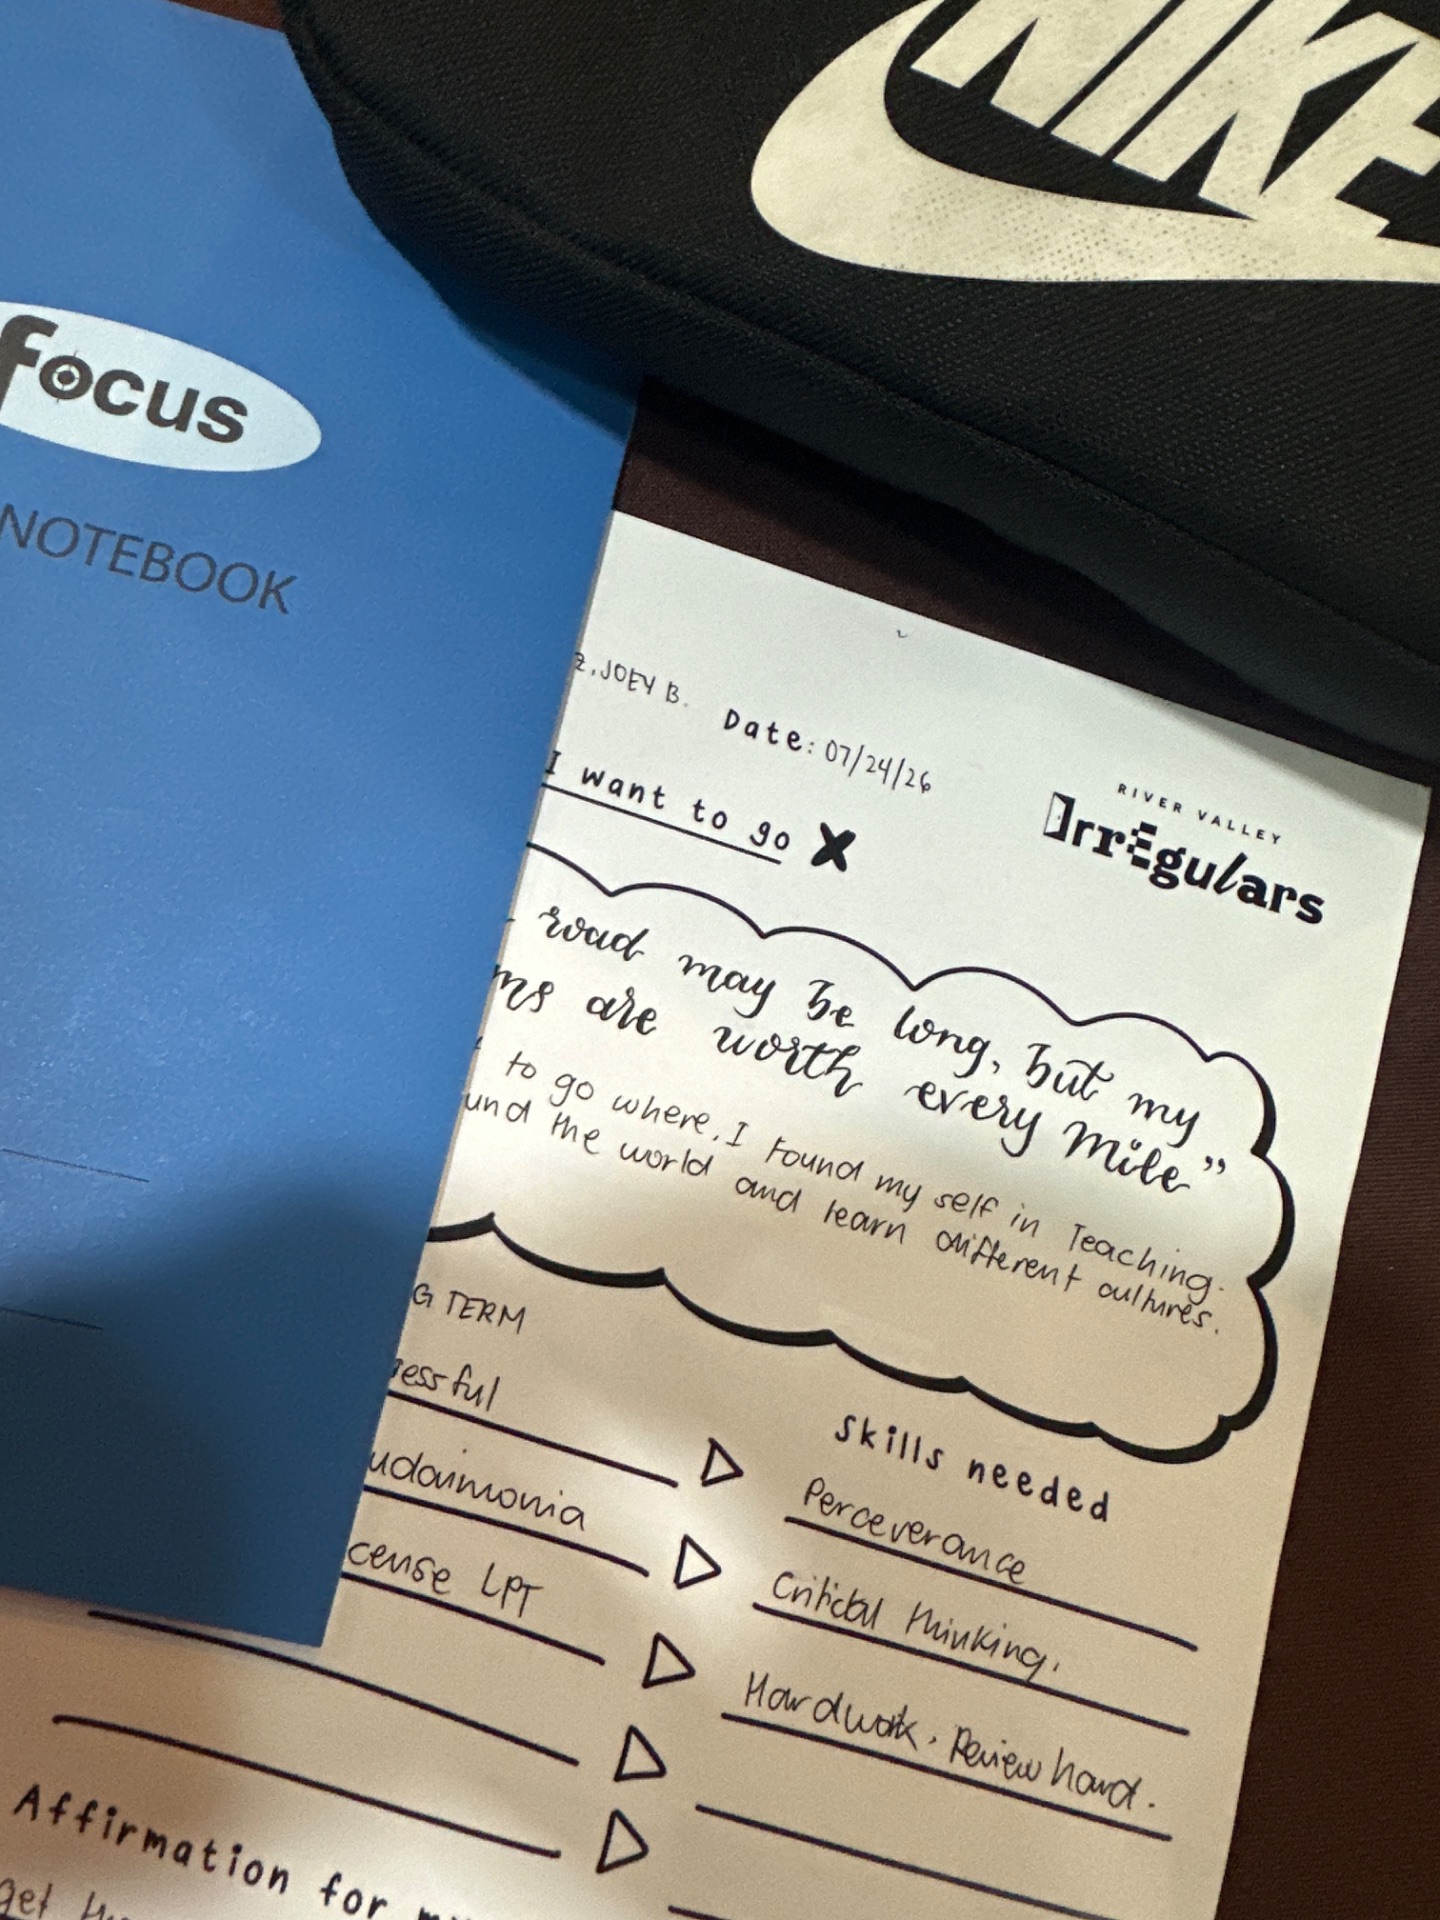 NIKE
focus
NOTEBOOK
z, JOEY B.
Date: 07/24/26
I want to go X
RIVER VALLEY
Irregulars
road may be long, but my
ms are worth every mile”
to go where, I Found my self in Teaching.
und the world and learn different cultures.
G TERM
essful
udaimonia
cense LPT
Skills needed
Perceverance
Critical thinking.
Hardwork. Review hard.
Affirmation for
get